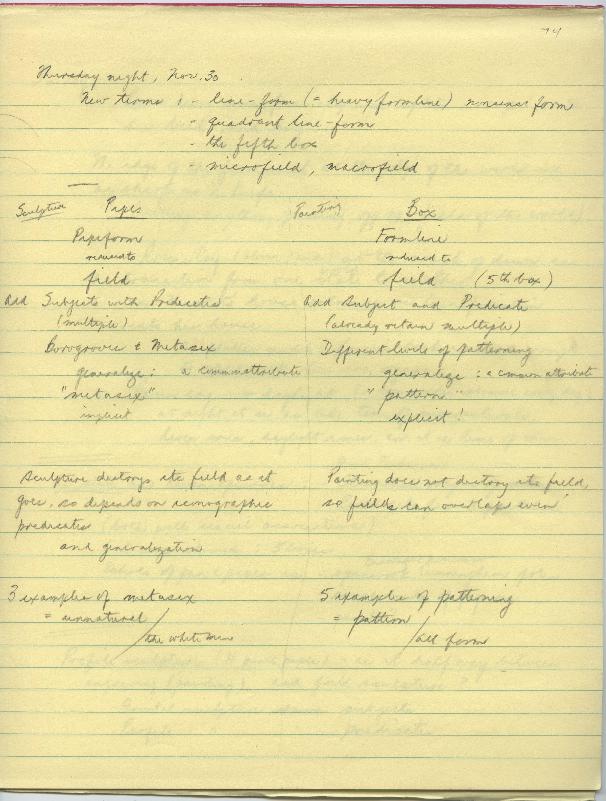 74
Thursday night, Nov. 30
New terms : - line-form (= heavy formline) form
- quadrant line-form
- the fifth box
- microfield, macrofield
Sculpture Pipes Painting Box
Pipeform Formline
reduced to reduced to
field field (5th box)
Add Subjects with Predicates Add Subject and Predicate
(multiple) (already retain multiple)
Borogrove & Metasex Different levels of patterning
generalize : a common attribute generalize : a common attribute
"metasex" "pattern"
implicit explicit!
Sculpture destroys its field as it Painting does not destroy its field,
goes, so depends on iconographic so fields can overlap even!
predicates
and generalization
3 examples of metasex 5 examples of patterning
= unnatural = pattern
/ the white man / all form